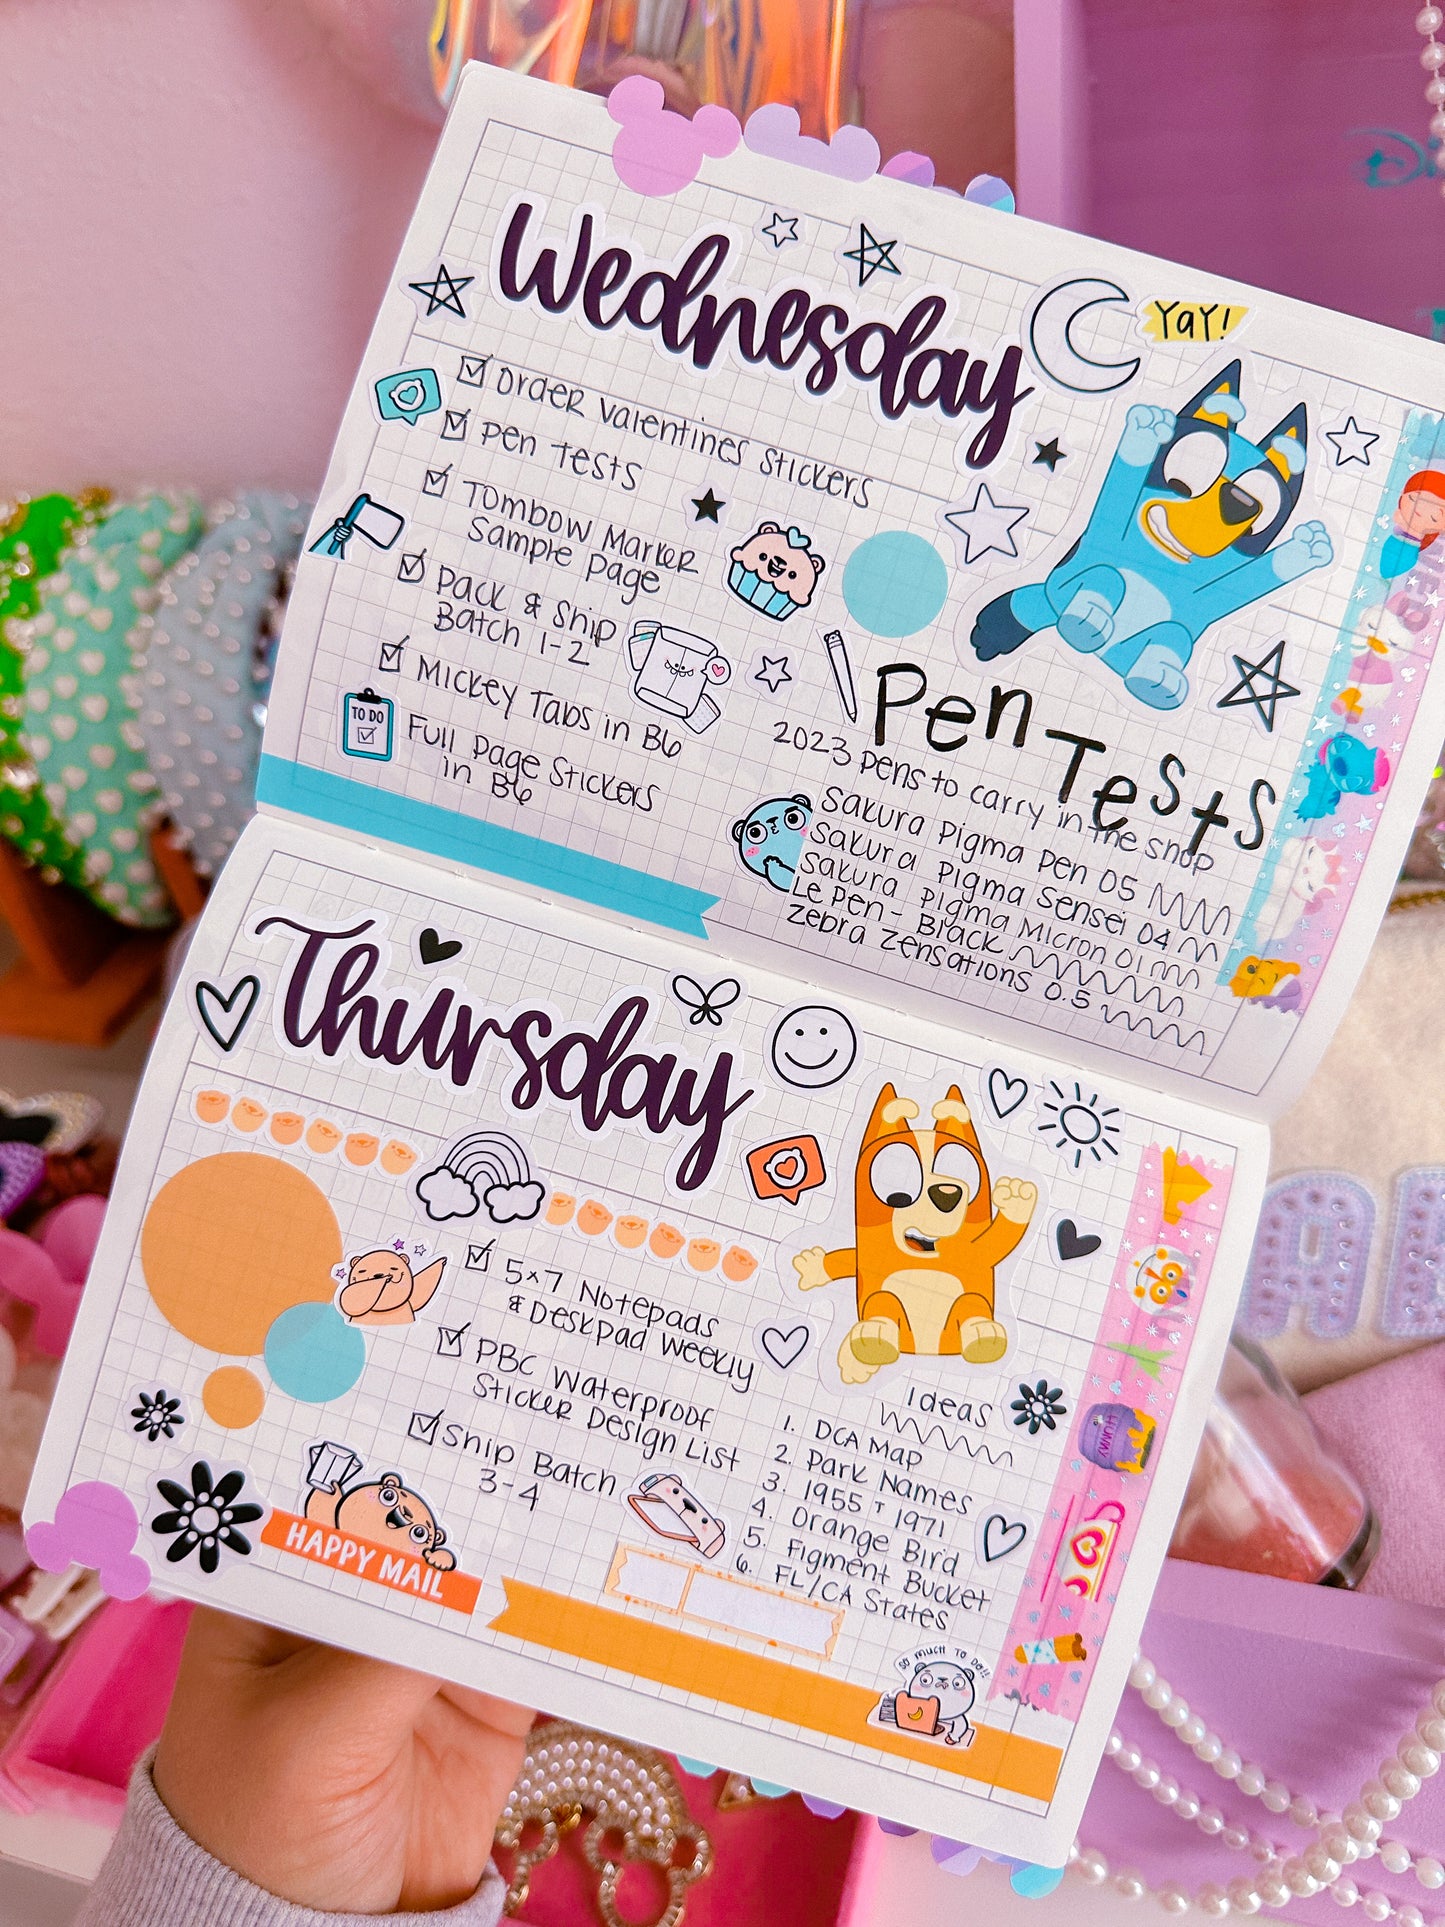 Wednesday
YAY!
Order Valentines Stickers
Pen Tests
Tombow Marker
Sample Page
Pack & Ship
Batch 1-2
Mickey Tabs in B6
TO DO
Full Page Stickers
in B6
Pen Tests
2023 Pens to carry in the shop
Sakura Pigma Pen 05
Sakura Pigma Sensei 04
Sakura Pigma Micron 01
Le Pen - Black
Zebra Zensations 0.5
Thursday
5x7 Notepads
& Deskpad Weekly
PBC Waterproof
Sticker Design List
Ship Batch
3-4
HAPPY MAIL
Ideas
1. DCA Map
2. Park Names
3. 1955 + 1971
4. Orange Bird
5. Figment Bucket
6. FL/CA States
SO MUCH TO DO!!
HUNNY